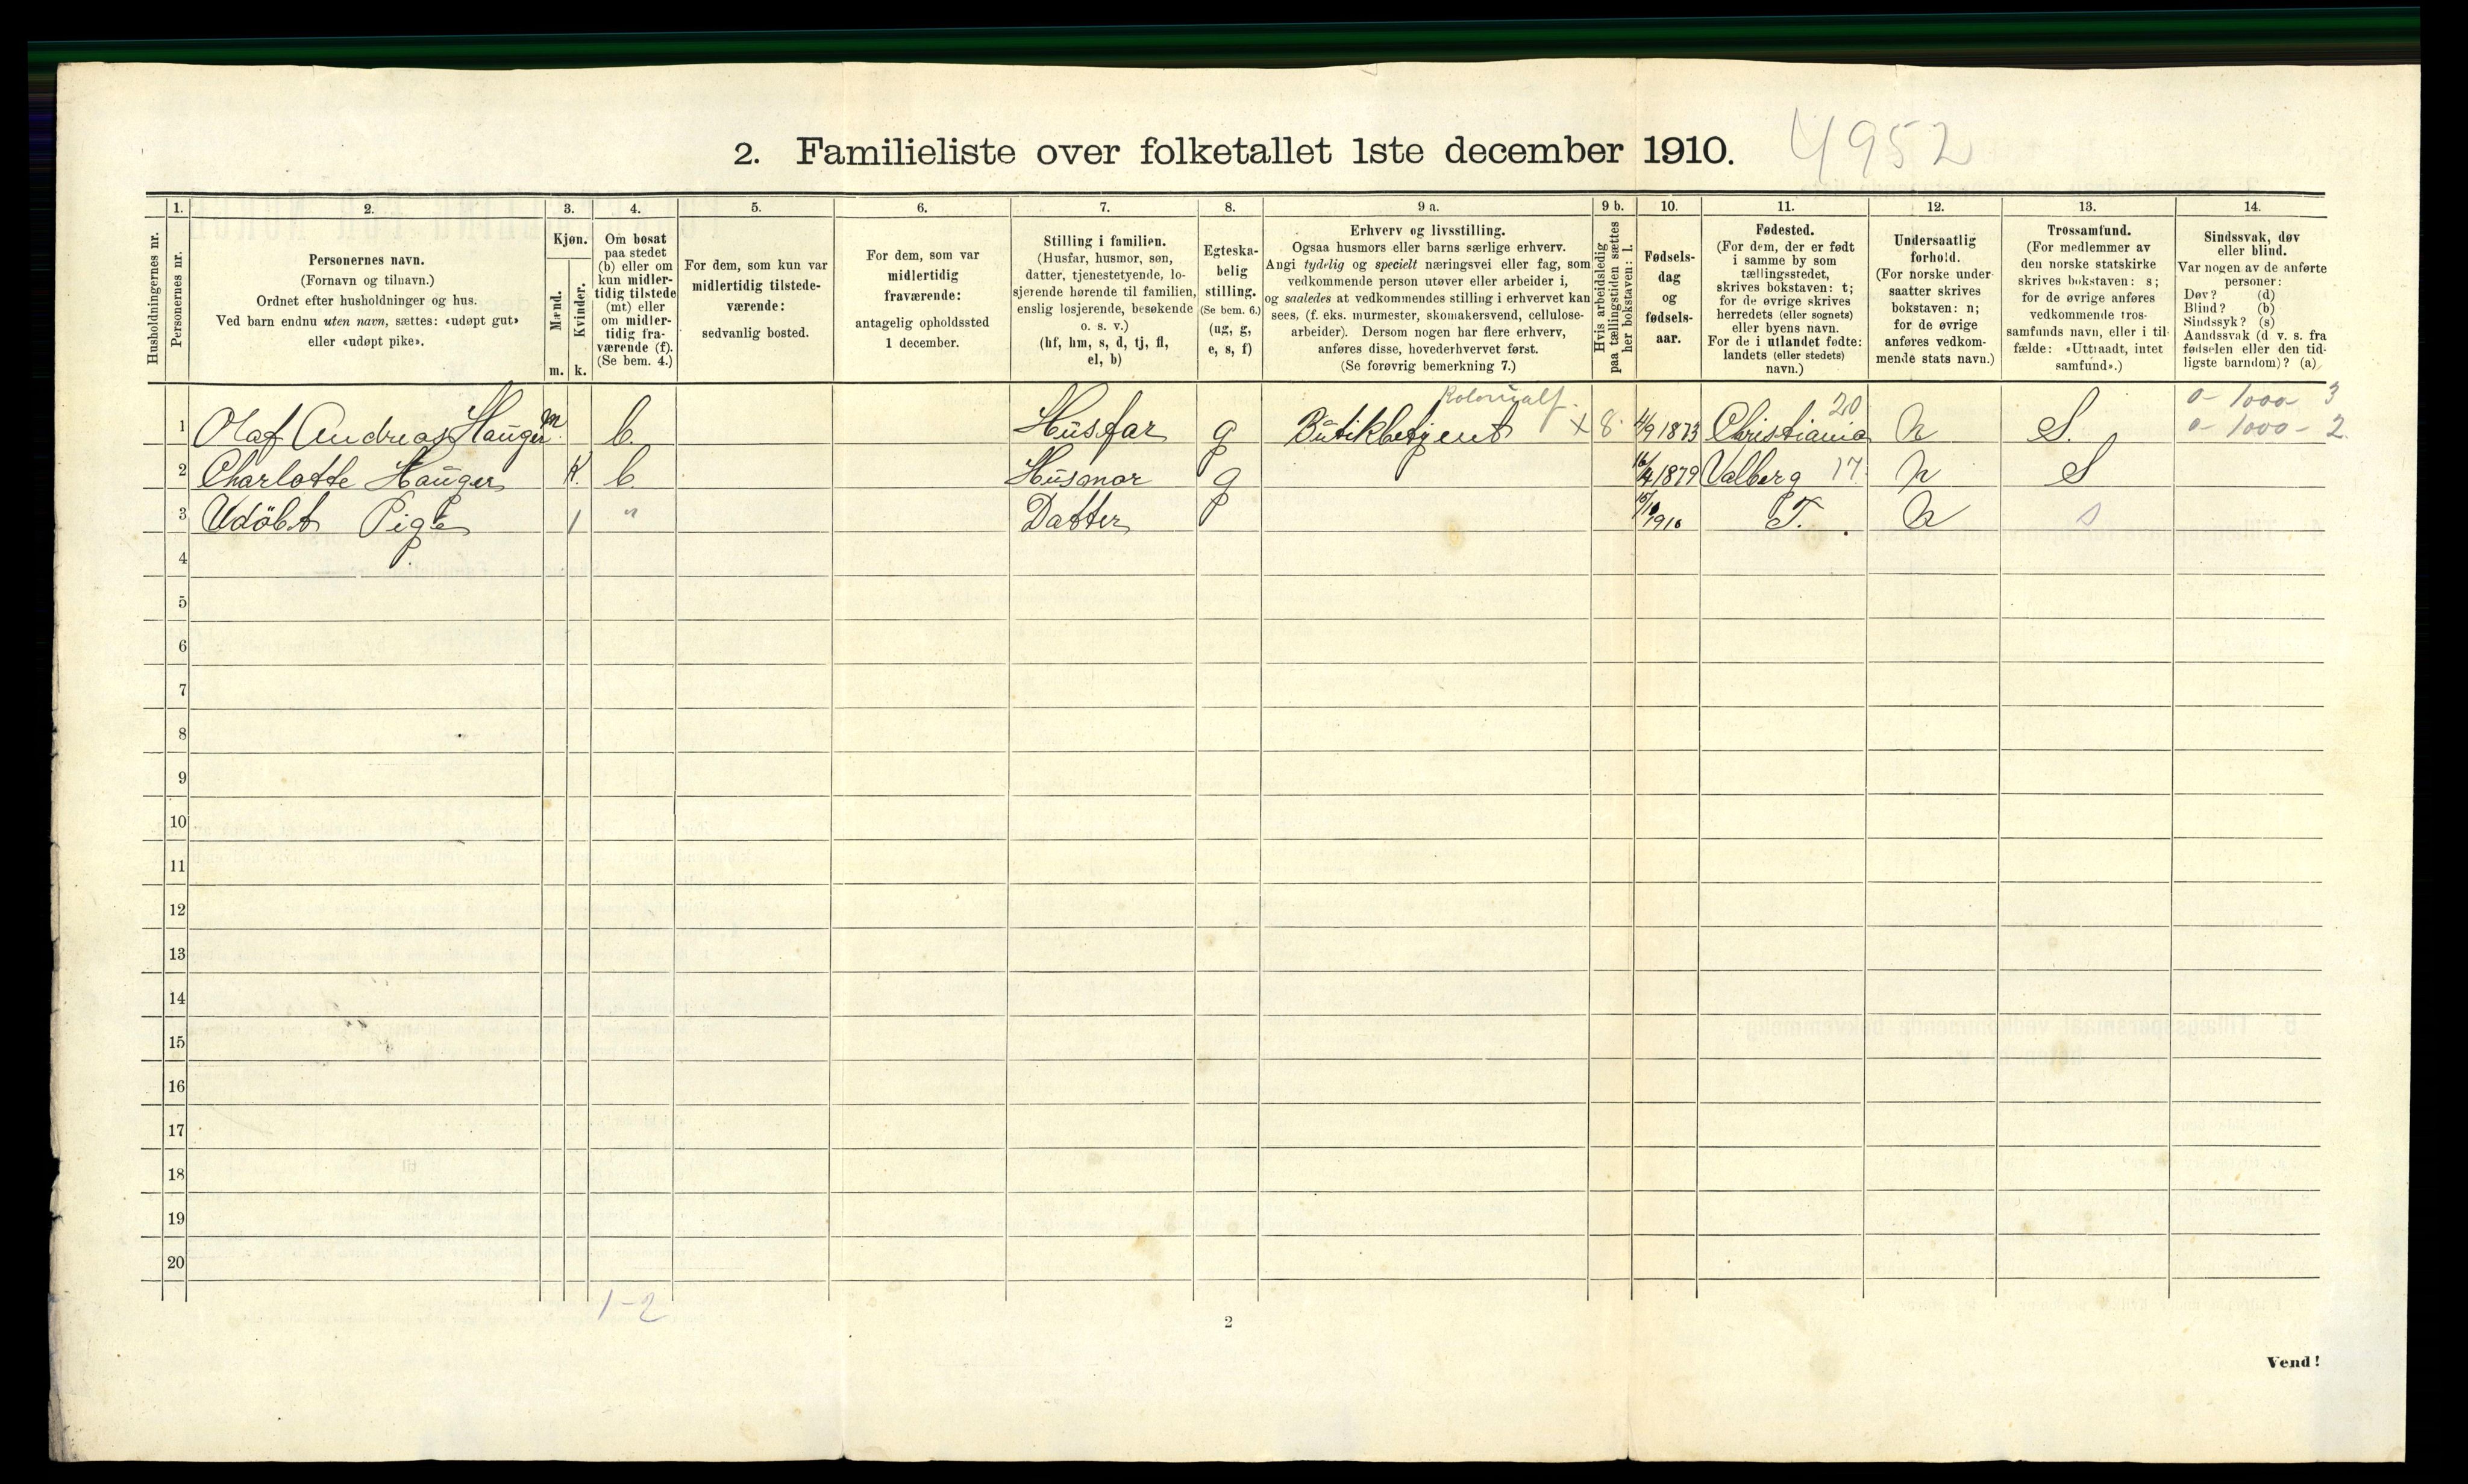 2. Familieliste over folketallet 1ste december 1910. 4952
Husholdningernes nr.
1.
Personernes nr.
2.
Personernes navn.
(Fornavn og tilnavn.)
Ordnet efter husholdninger og hus.
Ved barn endnu uten navn, sættes: «udøpt gut»
eller «udøpt pike».
3.
Kjøn.
Mænd.
Kvinder.
m. k.
4.
Om bosat
paa stedet
(b) eller om
kun midler-
tidig tilstede
(mt) eller
om midler-
tidig fra-
værende (f).
(Se bem. 4.)
5.
For dem, som kun var
midlertidig tilstede-
værende:
sedvanlig bosted.
6.
For dem, som var
midlertidig
fraværende:
antagelig opholdssted
1 december.
7.
Stilling i familien.
(Husfar, husmor, søn,
datter, tjenestetyende, lo-
sjerende hørende til familien,
enslig losjerende, besøkende
o. s. v.)
(hf, hm, s, d, tj, fl,
el, b)
8.
Egteska-
belig
stilling.
(Se bem. 6.)
(ug, g,
e, s, f)
9 a.
Erhverv og livsstilling.
Ogsaa husmors eller barns særlige erhverv.
Angi tydelig og specielt næringsvei eller fag, som
vedkommende person utøver eller arbeider i,
og saaledes at vedkommendes stilling i erhvervet kan
sees, (f. eks. murmester, skomakersvend, cellulose-
arbeider). Dersom nogen har flere erhverv,
anføres disse, hovederhvervet først.
(Se forøvrig bemerkning 7.)
9 b.
Hvis arbeidsledig
paa tællingstiden sættes
her bokstaven: l.
10.
Fødsels-
dag
og
fødsels-
aar.
11.
Fødested.
(For dem, der er født
i samme by som
tællingsstedet,
skrives bokstaven: t;
for de øvrige skrives
herredets (eller sognets)
eller byens navn.
For de i utlandet fødte:
landets (eller stedets)
navn.)
12.
Undersaatlig
forhold.
(For norske under-
saatter skrives
bokstaven: n;
for de øvrige
anføres vedkom-
mende stats navn.)
13.
Trossamfund.
(For medlemmer av
den norske statskirke
skrives bokstaven: s;
for de øvrige anføres
vedkommende tros-
samfunds navn, eller i til-
fælde: «Uttraadt, intet
samfund».)
14.
Sindssvak, døv
eller blind.
Var nogen av de anførte
personer:
Døv? (d)
Blind? (b)
Sindssyk? (s)
Aandssvak (d v. s. fra
fødselen eller den tid-
ligste barndom)? (a)
Kolonialf. 20 0- 1000- 3
1 Olaf Andreas Hauger m. b. Husfar g Butikbetjent x 8. 4/9 1873 Christiania N S. 0- 1000- 2.
2 Charlotte Hauger K. b. Husmor g 16/4 1879 Valberg 17. N S
3 Udöbt Pige 1 " Datter 15/10 1910 T. N s
4
5
6
7
8
9
10
11
12
13
14
15
16
17
18
19
20
1-2
2
Vend!